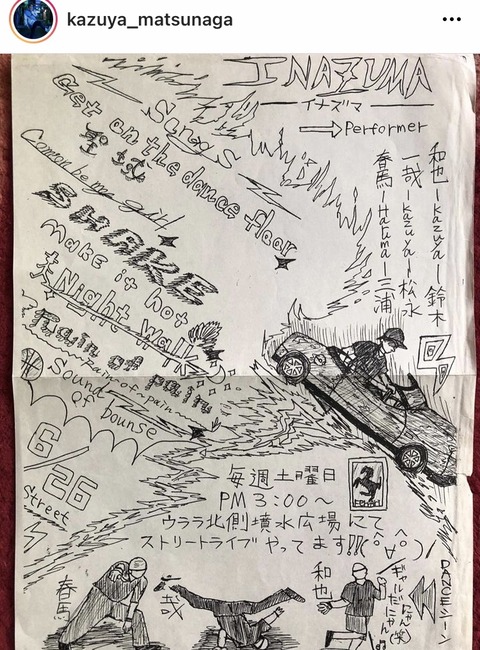 kazuya_matsunaga
INAZUMA
イナズマ
Performer
和也—kazuya—鈴木
一哉—kazuya—松永
春馬—Haruma—三浦
Songs
Get on the dance floor
Connot be my girl
SHAKE
Make it hot
Night walk
Rain of pain
Rain-of-pain
Sound
Of bounse
6/26
Street
毎週土曜日
PM 3:00〜
ウララ北側噴水広場にて
ストリートライブやってます!!!
DANCEシーン
春馬
一哉
和也